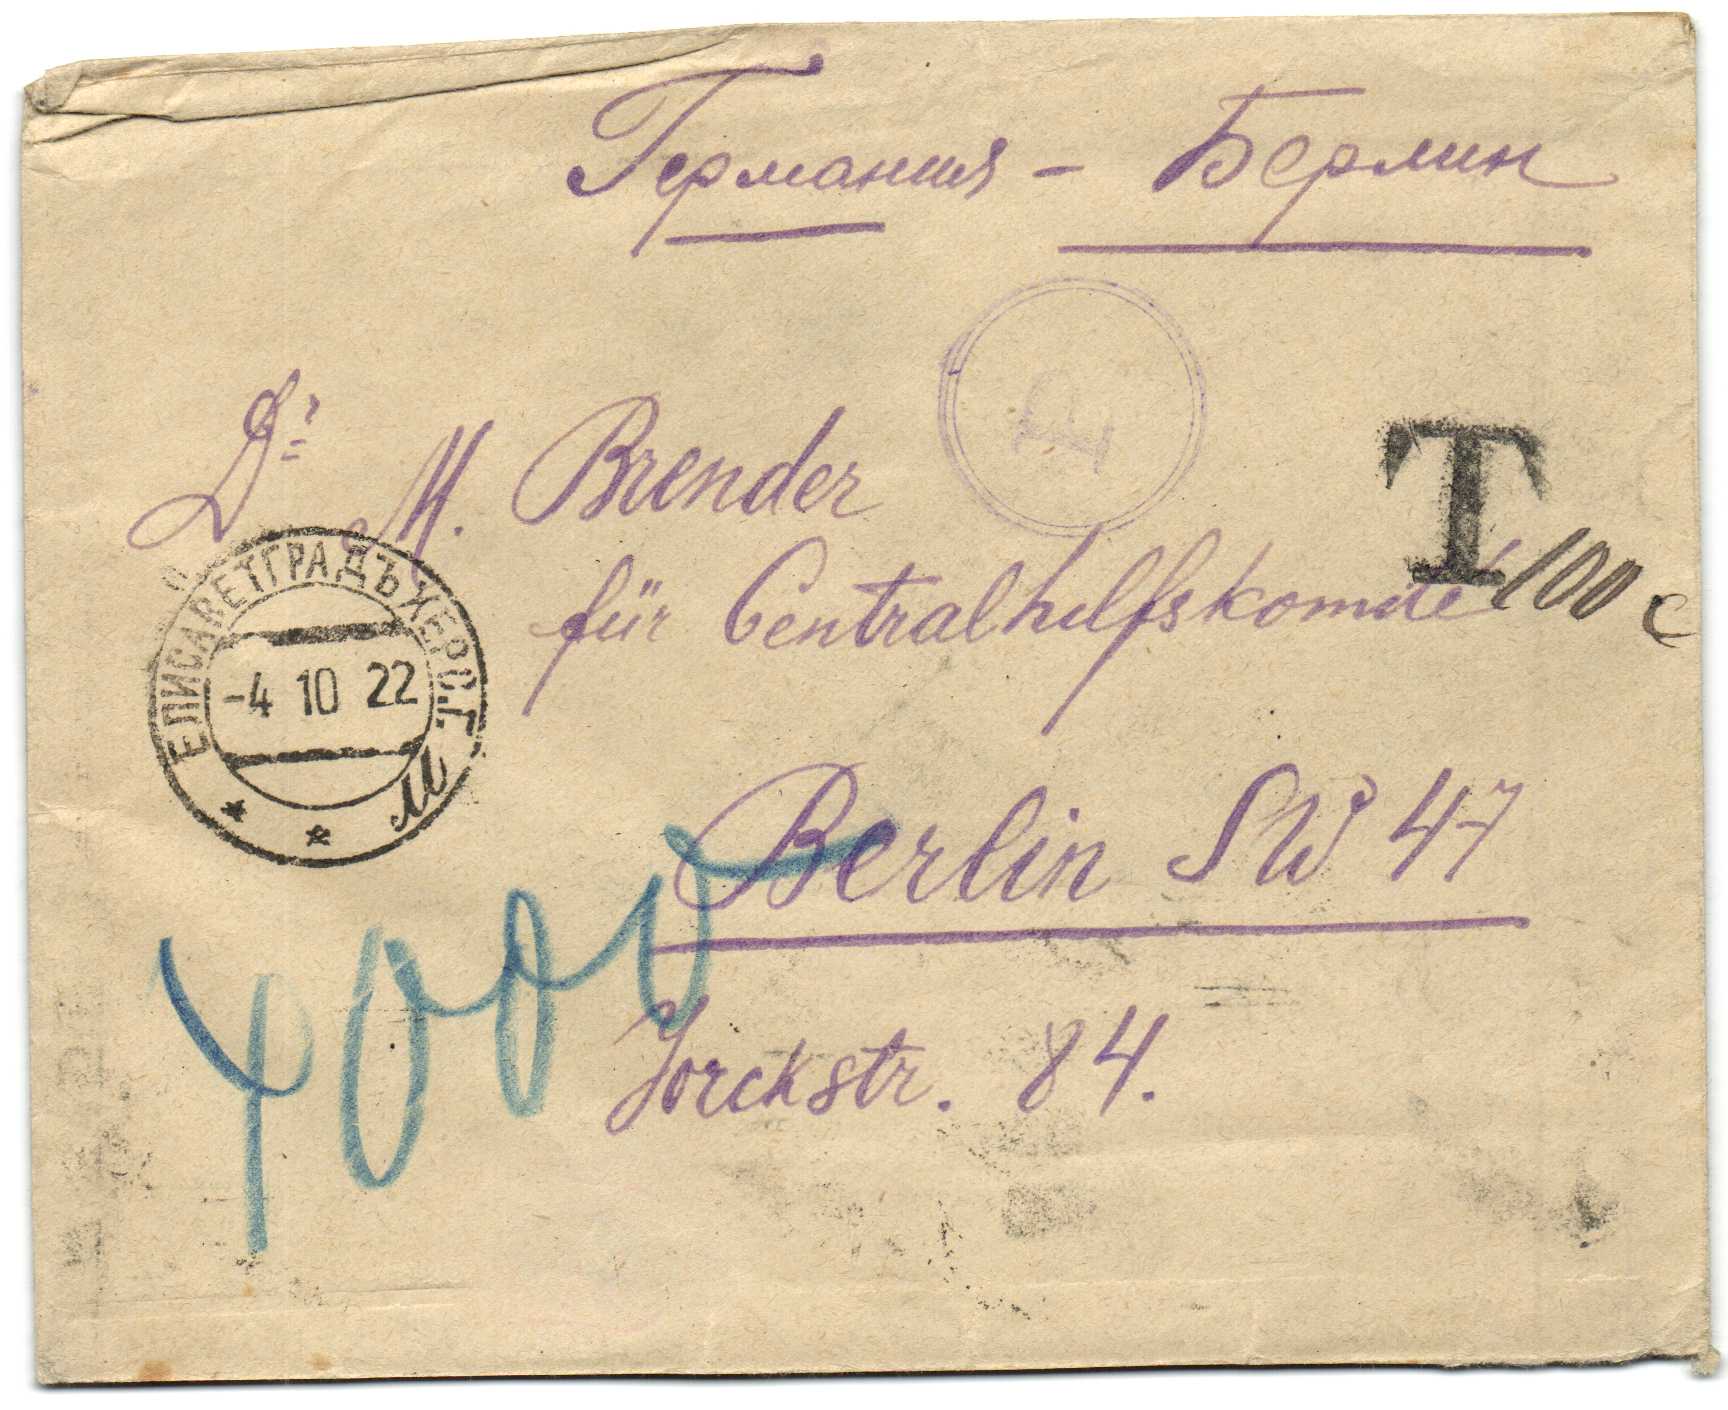 Германия - Берлин
Dr. M. Brender
für Centralhilfskomite
T 100 c
ЕЛИСАВЕТГРАДЪ ХЕРС.Г.
-4 10 22
Berlin SW 47
4000
Yorckstr. 84.